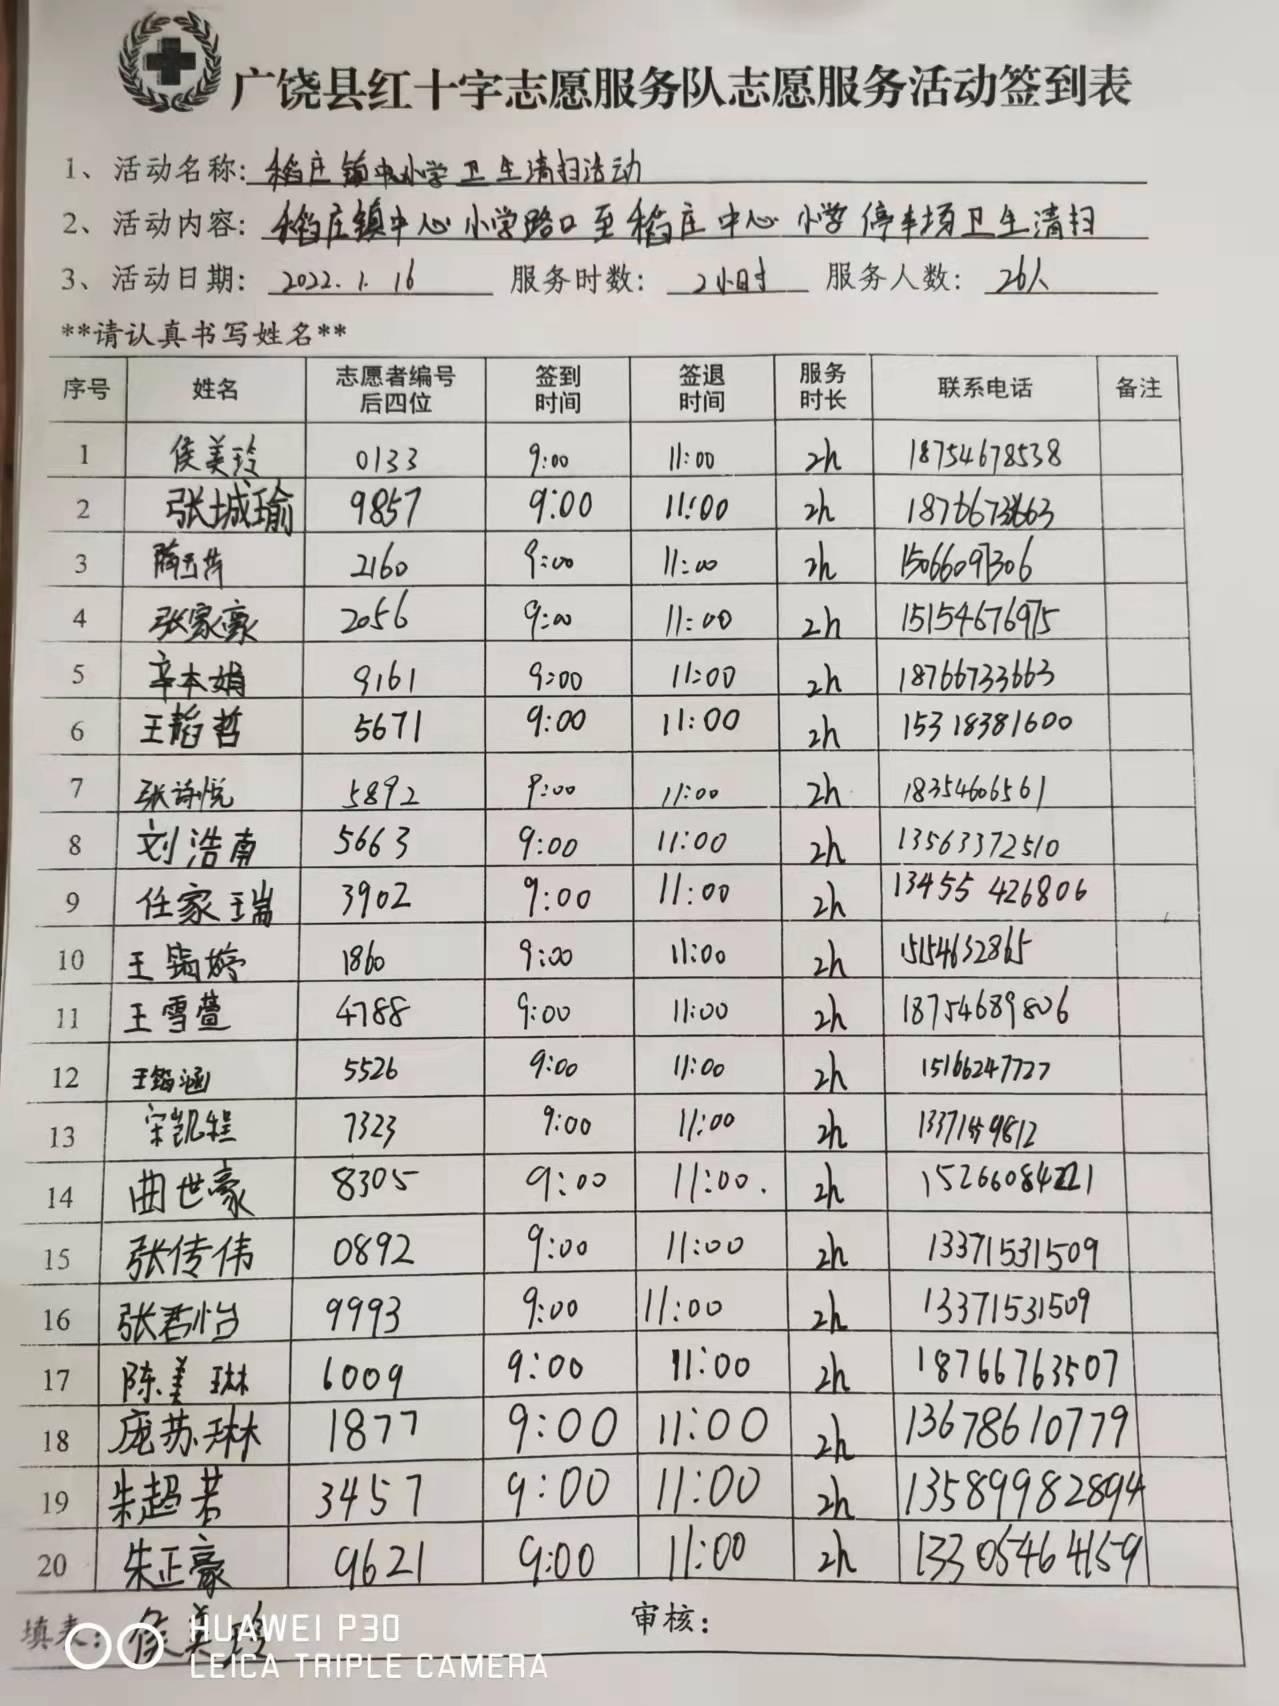 广饶县红十字志愿服务队志愿服务活动签到表
1、活动名称：稻庄镇中心小学卫生清扫活动
2、活动内容：稻庄镇中心小学路口至稻庄中心小学停车场卫生清扫
3、活动日期：2022.1.16 服务时数：2小时 服务人数：26人
**请认真书写姓名**
序号 姓名 志愿者编号后四位 签到时间 签退时间 服务时长 联系电话 备注
1 侯美玲 0133 9:00 11:00 2h 18754678538
2 张城瑜 9857 9:00 11:00 2h
3 2160 9:00 11:00 2h 15066097306
4 张家豪 2056 9:00 11:00 2h 15154676975
5 辛本娟 9161 9:00 11:00 2h 18766733663
6 王韬哲 5671 9:00 11:00 2h 15318381600
7 张诗悦 5892 9:00 11:00 2h 18354606561
8 刘浩南 5663 9:00 11:00 2h 13563372510
9 任家瑞 3902 9:00 11:00 2h 13455426806
10 王 婷 1860 9:00 11:00 2h 15154632865
11 王雪萱 4788 9:00 11:00 2h 18754689806
12 王 涵 5526 9:00 11:00 2h 15166247727
13 宋凯程 7323 9:00 11:00 2h
14 曲世豪 8305 9:00 11:00. 2h
15 张传伟 0892 9:00 11:00 2h 13371531509
16 张君怡 9993 9:00 11:00 2h 13371531509
17 陈美琳 6009 9:00 11:00 2h 18766763507
18 庞苏琳 1877 9:00 11:00 2h 13678610779
19 朱超若 3457 9:00 11:00 2h 13589982894
20 朱正豪 9621 9:00 11:00 2h 13305464159
填表：侯美玲 审核：
HUAWEI P30
LEICA TRIPLE CAMERA